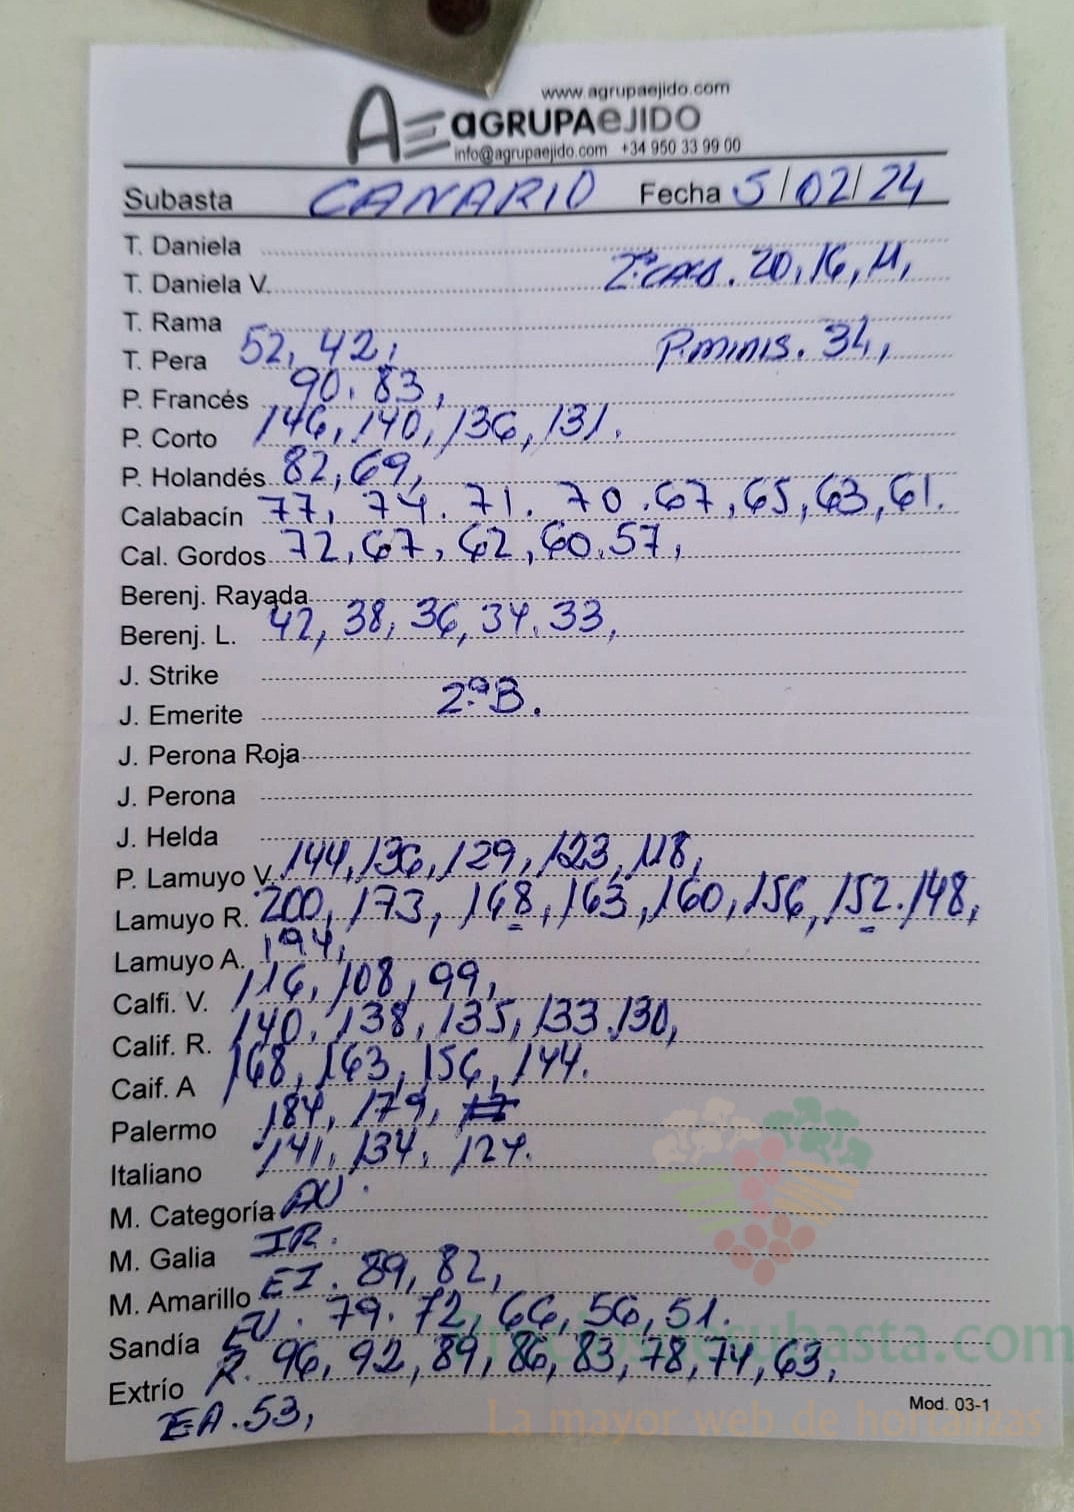 www.agrupaejido.com
AE aGRUPAeJIDO
info@agrupaejido.com +34 950 33 99 00
Subasta CANARIO Fecha 5/02/24
T. Daniela
T. Daniela V. 20, 16, 11,
T. Rama
T. Pera 52, 42, P. minis. 34,
P. Francés 90, 83,
P. Corto 146, 140, 136, 131.
P. Holandés 82, 69,
Calabacín 77, 74. 71. 70. 67, 65, 63, 61.
Cal. Gordos 72, 67, 62, 60. 57,
Berenj. Rayada
Berenj. L. 42, 38, 36, 34. 33,
J. Strike
J. Emerite 2ª B.
J. Perona Roja
J. Perona
J. Helda
P. Lamuyo V. 144, 136, 129, 123, 118,
Lamuyo R. 200, 173, 168, 163, 160, 156, 152. 148,
Lamuyo A. 194,
Calfi. V. 116, 108, 99,
Calif. R. 140, 138, 135, 133. 130,
Caif. A 168, 163, 156, 144.
Palermo 184, 179,
Italiano 141, 134, 124.
M. Categoría AV.
M. Galia IR.
M. Amarillo EI. 89, 82,
Sandía EV. 79. 72, 66, 56, 51.
Extrío R. 96, 92, 89, 86, 83, 78, 74, 63,
EA. 53,
Mod. 03-1
La mayor web de hortalizas